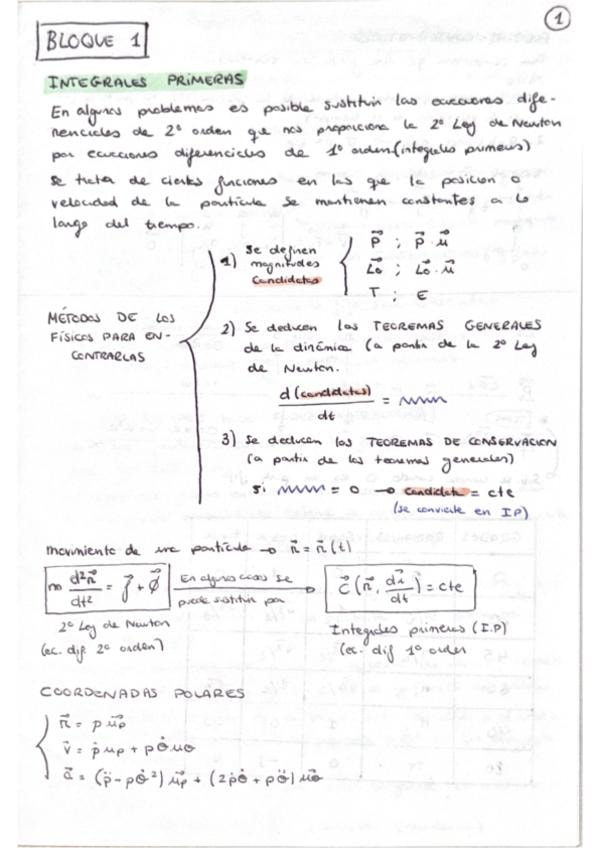 1
BLOQUE 1
INTEGRALES PRIMERAS
En algunos problemas es posible sustituir las ecuaciones dife-
renciales de 2º orden que nos proporciona la 2º Ley de Newton
por ecuaciones diferenciales de 1º orden (integrales primeras)
Se trata de ciertas funciones en las que la posicion o
velocidad de la partícula se mantienen constantes a lo
largo del tiempo.
MÉTODOS DE LOS
FÍSICOS PARA EN-
CONTRARLAS
1) Se definen
magnitudes
candidatas
P⃗ ; P⃗ · u⃗
L⃗o ; L⃗o · u⃗
T ; E
2) Se deducen los TEOREMAS GENERALES
de la dinámica (a partir de la 2º Ley
de Newton.
d (candidatas) / dt =
3) Se deducen los TEOREMAS DE CONSERVACION
(a partir de los teoremas generales)
si = 0 → candidata = cte
(se convierte en IP)
movimiento de una partícula → r⃗ = r⃗ (t)
m d²r⃗ / dt² = f⃗ + φ⃗
En algunos casos se
puede sustituir por
C⃗ (r⃗, dr⃗ / dt) = cte
2º Ley de Newton
(ec. dif. 2º orden)
Integrales primeras (I.P)
(ec. dif 1º orden
COORDENADAS POLARES
r⃗ = ρ u⃗ρ
v⃗ = ρ̇ uρ + ρθ̇ uθ
a⃗ = (ρ̈ - ρθ̇²) u⃗ρ + (2ρ̇θ̇ + ρθ̈) u⃗θ